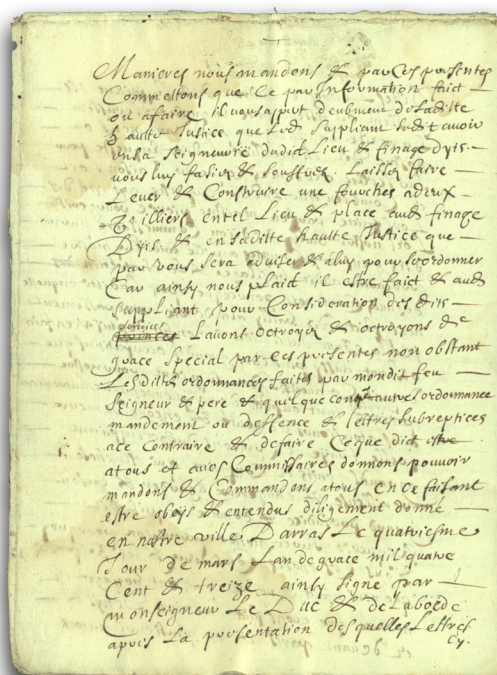 Manieres nous mandons & par ces presentes
Commettons que ce par Information faict
ou afaire il vous appert deubment de Laditte
haulte Justice que Led suppliant audit avoir
en sa seigneurie dudict Lieu & finage Dyis
vous luy fasies & souffrés Laisser faire
Lever & Construire une fourches a deux
pilliers en tel Lieu & place aud finage
Dyis & en saditte haulte Justice que
par vous sera adviser & a luy pour ce ordonner
Car ainsy nous plaict il estre faict & aud
suppliant pour Consideration des dits
Lavons octroyez & octroyons de
grace special par ces presentes non obstant
Lesdittes ordonnances faites par mondit feu
seigneur & pere & quelque conq autres ordonnance
mandement ou deffence & lettres subreptices
a ce contraire & de faire ce que dict estre
a tous et avies Commissaires donnons pouvoir
mandons & Commandons a tous en ce faisant
estre obeys & entendus diligement donne
en nostre ville Darras Le quatriesme
Jour de mars Lan de grace mil quatre
Cent & treize ainsy signé par
monseigneur Le Duc & de Laboede
apres La presentation desquelles Lettres